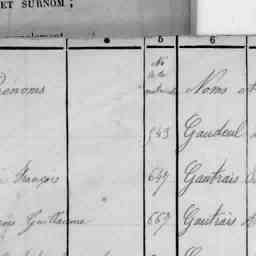 ET SURNOM ;
5 6
Prénoms No de la matricule Noms et
543 Gaudeul
François 647 Gautrais
Guillaume 667 Gautrais